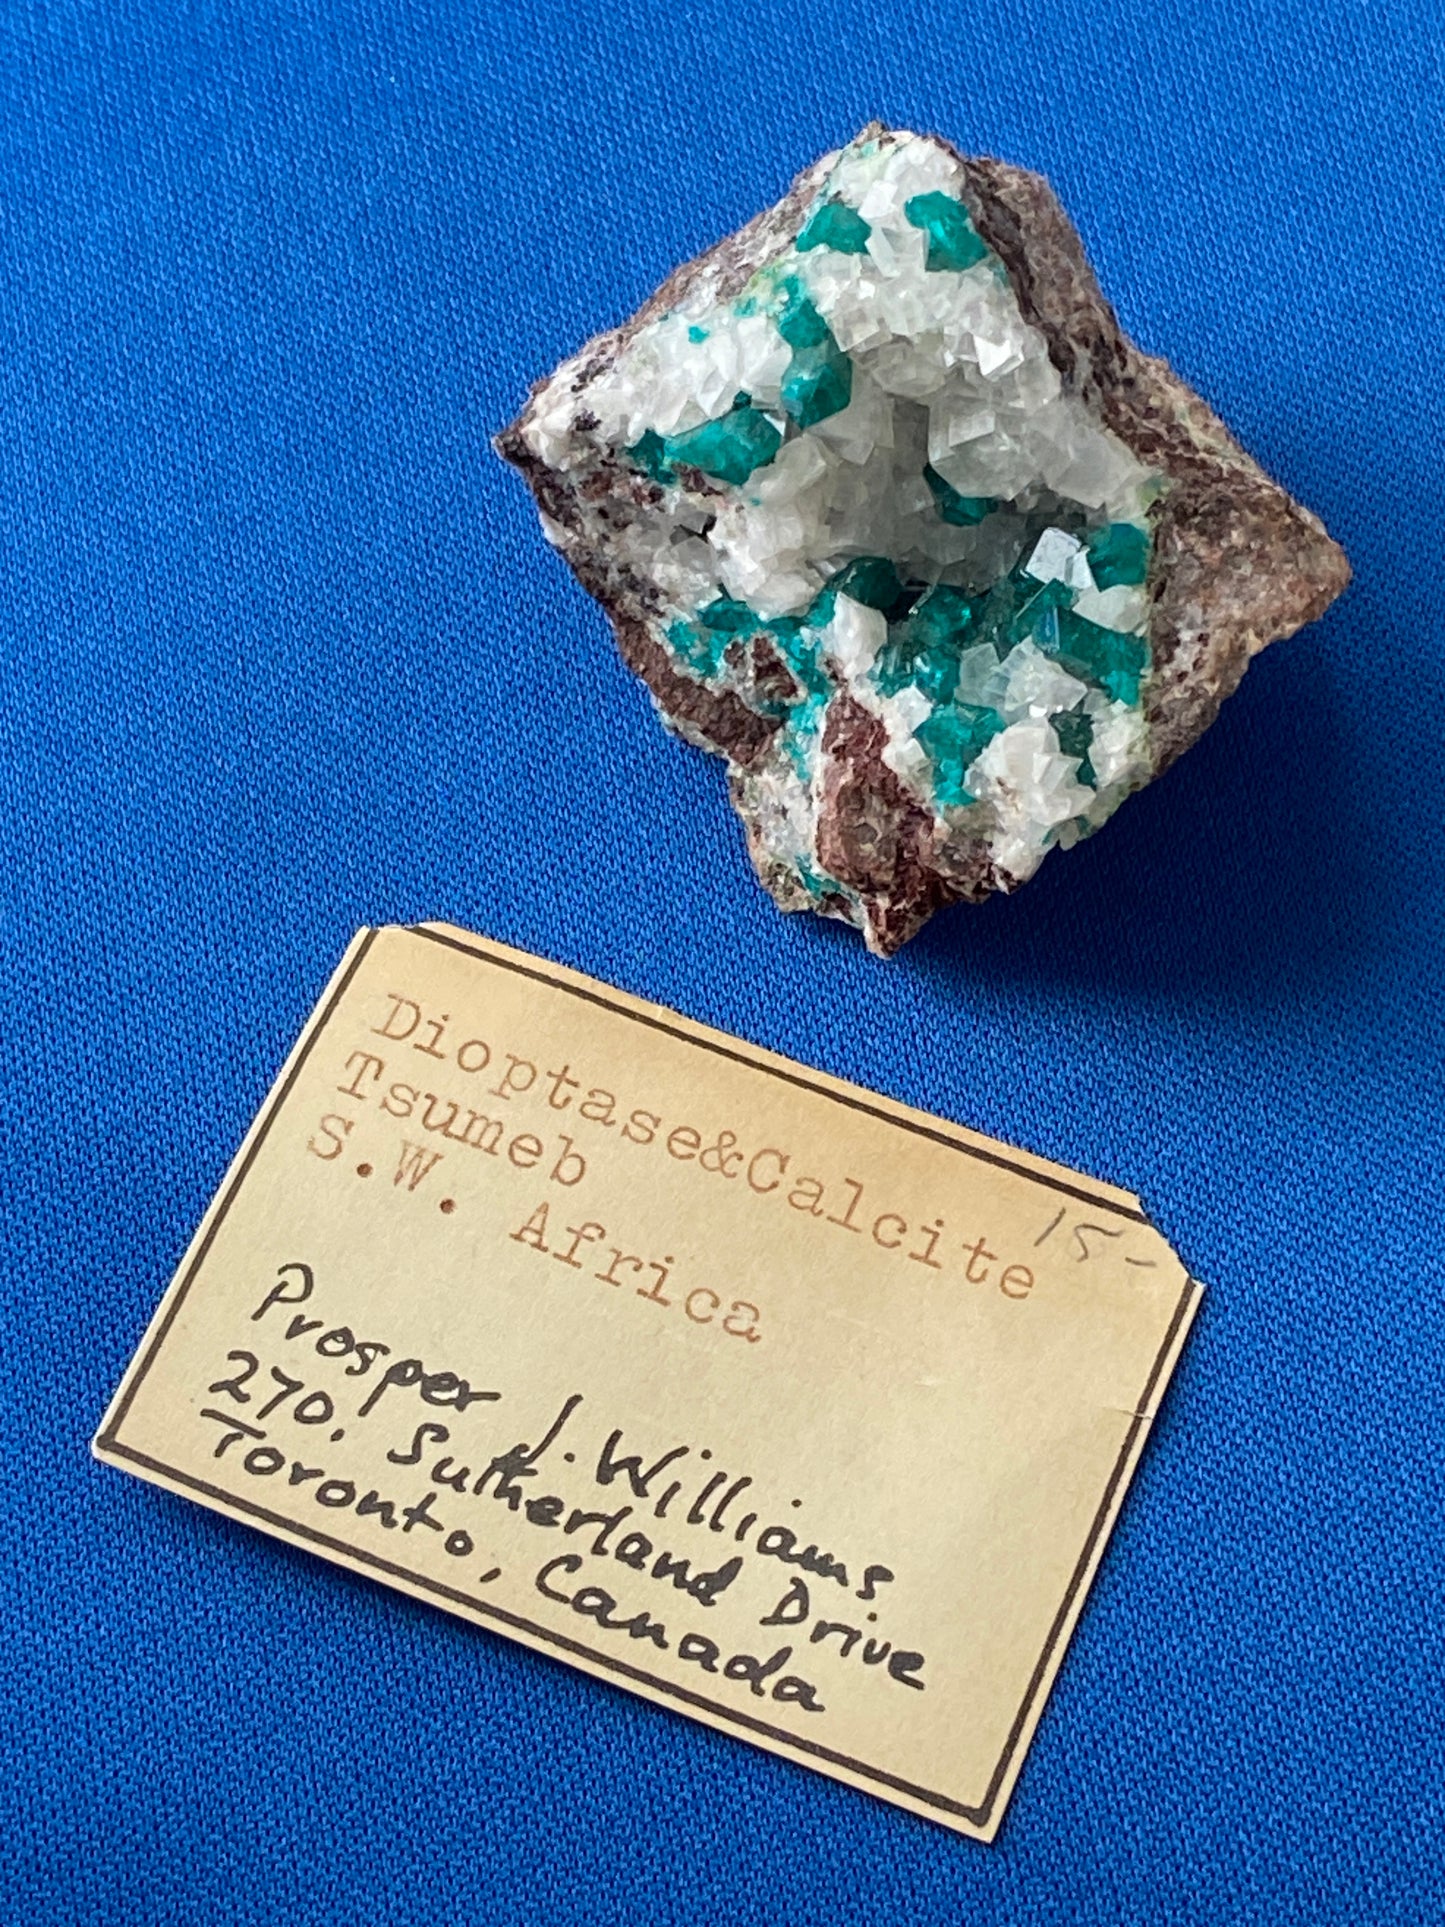 Dioptase&Calcite
15-
Tsumeb
S.W. Africa
Prosper J. Williams
270, Sutherland Drive
Toronto, Canada